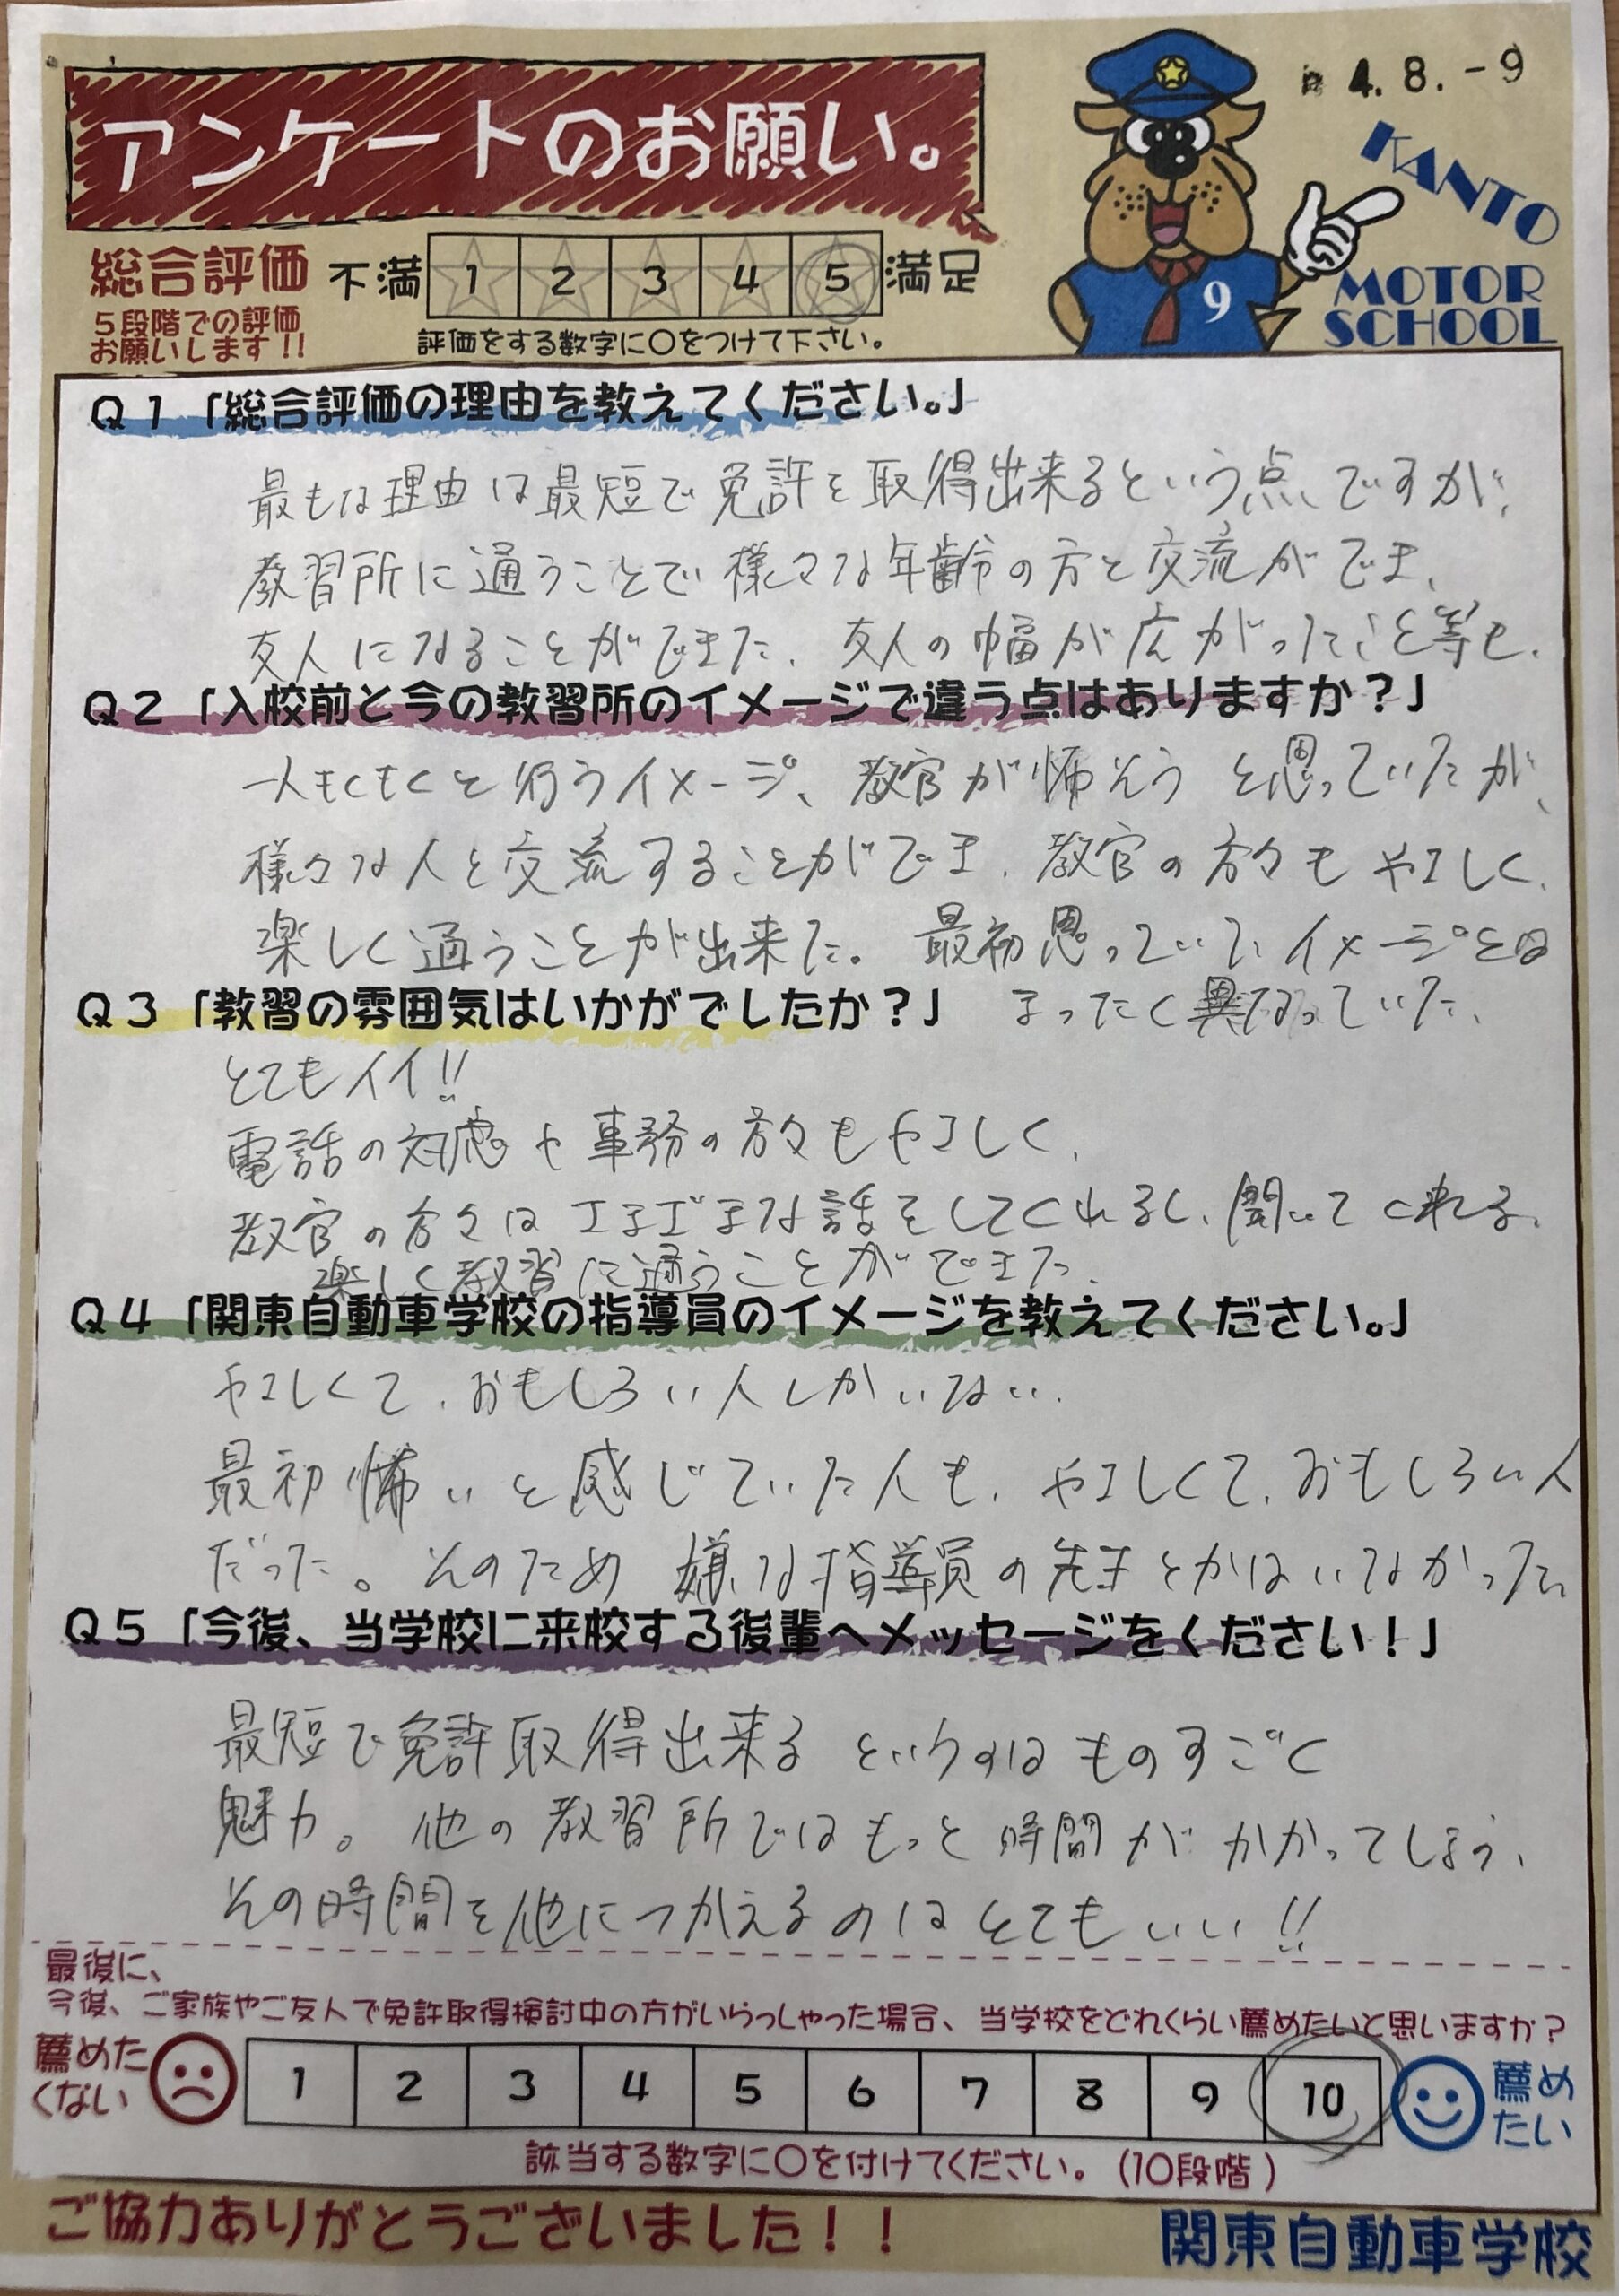 アンケートのお願い。
4. 8. -9
KANTO
MOTOR
SCHOOL
9
総合評価
5段階での評価
お願いします!!
不満 1 2 3 4 5 満足
評価をする数字に○をつけて下さい。
Q1「総合評価の理由を教えてください。」
最もな理由は最短で免許を取得出来るという点、ですが、
教習所に通うことで様々な年齢の方と交流ができ、
友人になることができた、友人の幅が広がったこと等も、
Q2「入校前と今の教習所のイメージで違う点はありますか？」
一人もくもくと行うイメージ、教官が怖そうと思っていたが、
様々な人と交流することができ、教官の方々もやさしく、
楽しく通うことが出来た。最初思っていたイメージとは
まったく異なっていた、
Q3「教習の雰囲気はいかがでしたか？」
とてもイイ!!
電話の対応や事務の方々もやさしく、
教官の方々はさまざまな話をしてくれるし、聞いてくれる、
楽しく教習に通うことができた、
Q4「関東自動車学校の指導員のイメージを教えてください。」
やさしくて、おもしろい人しかいない、
最初怖いと感じていた人も、やさしくて、おもしろい人
だった。そのため嫌な指導員の先生とかはいなかった、
Q5「今後、当学校に来校する後輩へメッセージをください！」
最短で免許取得出来るというのはものすごく
魅力。他の教習所ではもっと時間がかかってしまう、
その時間を他につかえるのはとてもいい!!
最後に、
今後、ご家族やご友人で免許取得検討中の方がいらっしゃった場合、当学校をどれくらい薦めたいと思いますか？
薦めた
くない
1 2 3 4 5 6 7 8 9 10
薦め
たい
該当する数字に○を付けてください。(10段階)
ご協力ありがとうございました！！
関東自動車学校